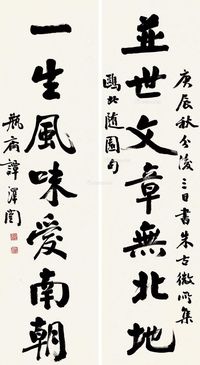 並世文章無北地
庚辰秋分後三日書朱古微所集
甌北隨園句
一生風味愛南朝
瓶齋譚澤闓